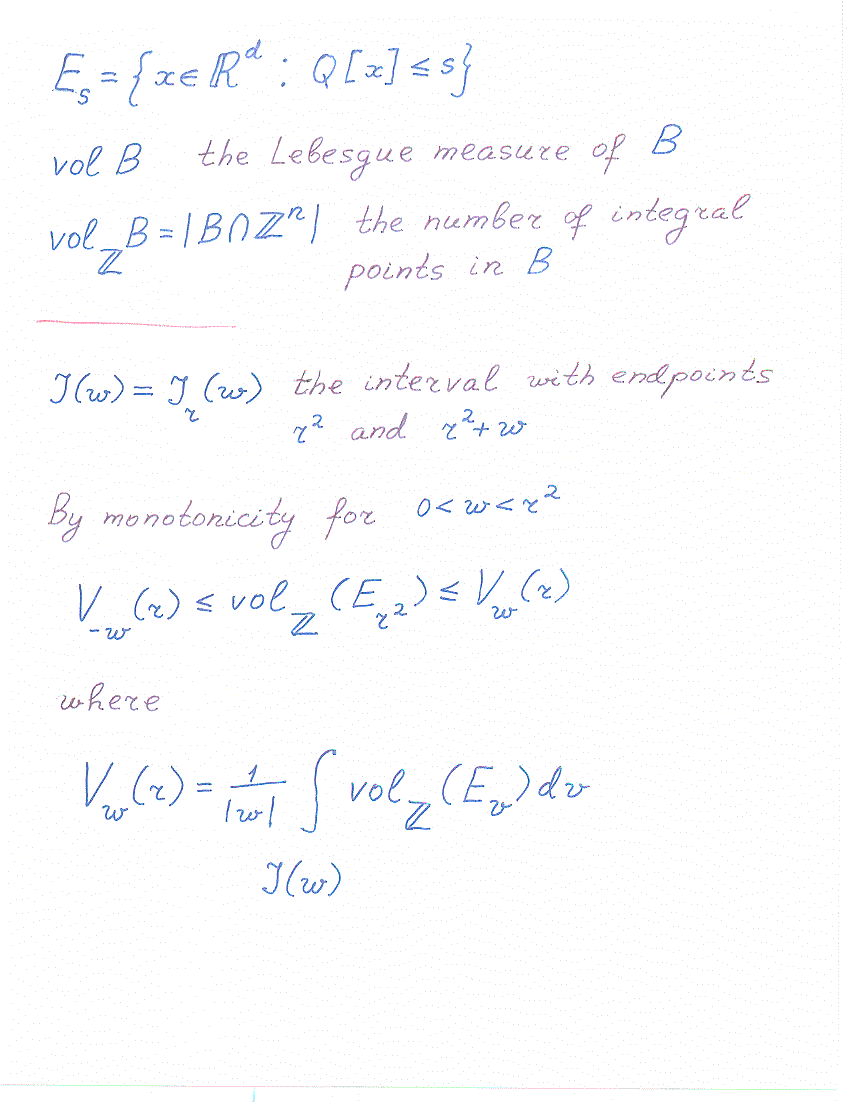 E_s = {x ∈ ℝ^d : Q[x] ≤ s}
vol B the Lebesgue measure of B
vol_ℤ B = |B ∩ ℤ^n| the number of integral
points in B
J(w) = J_r(w) the interval with endpoints
r² and r² + w
By monotonicity for 0 < w < r²
V_{-w}(r) ≤ vol_ℤ (E_{r²}) ≤ V_w(r)
where
V_w(r) = 1/|w| ∫_{J(w)} vol_ℤ (E_v) dv